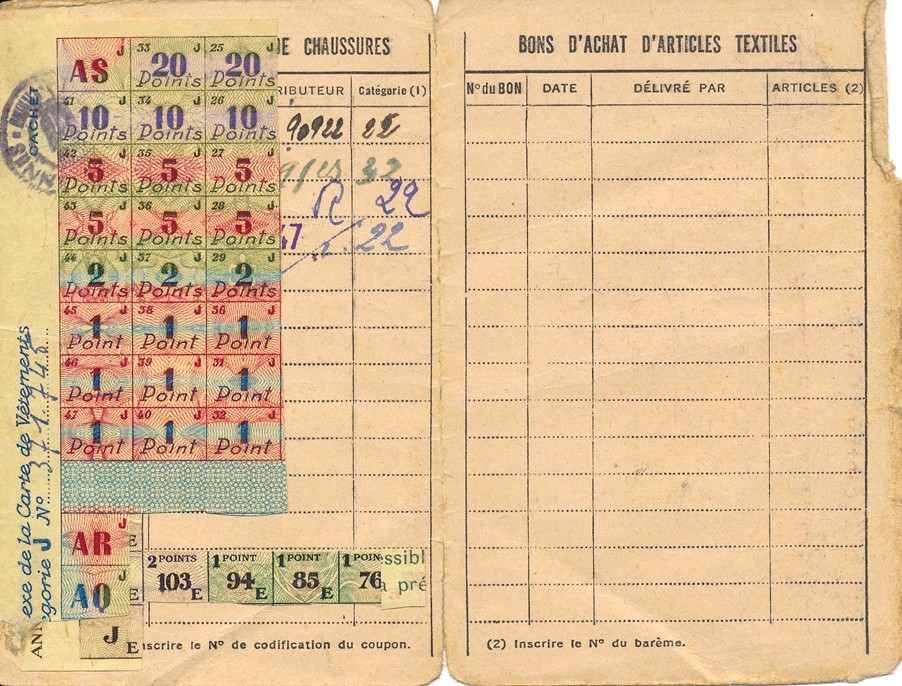 DE CHAUSSURES
RIBUTEUR Catégorie (1)
90922 22
32
R 22
47 22
AS J 33 J 20 Points 25 J 20 Points
41 J 10 Points 34 J 10 Points 26 J 10 Points
42 J 5 Points 35 J 5 Points 27 J 5 Points
43 J 5 Points 36 J 5 Points 28 J 5 Points
44 J 2 Points 37 J 2 Points 29 J 2 Points
45 J 1 Point 38 J 1 Point 30 J 1 Point
46 J 1 Point 39 J 1 Point 31 J 1 Point
47 J 1 Point 40 J 1 Point 32 J 1 Point
AR J E
AQ J
J E
2 POINTS 103 E 1 POINT 94 E 1 POINT 85 E 1 POIN 76
essibl
a pré
nscrire le No de codification du coupon.
CACHET
exe de la Carte de Vêtements
égorie J No
ANN
BONS D'ACHAT D'ARTICLES TEXTILES
No du BON DATE DÉLIVRÉ PAR ARTICLES (2)
(2) Inscrire le No du barème.